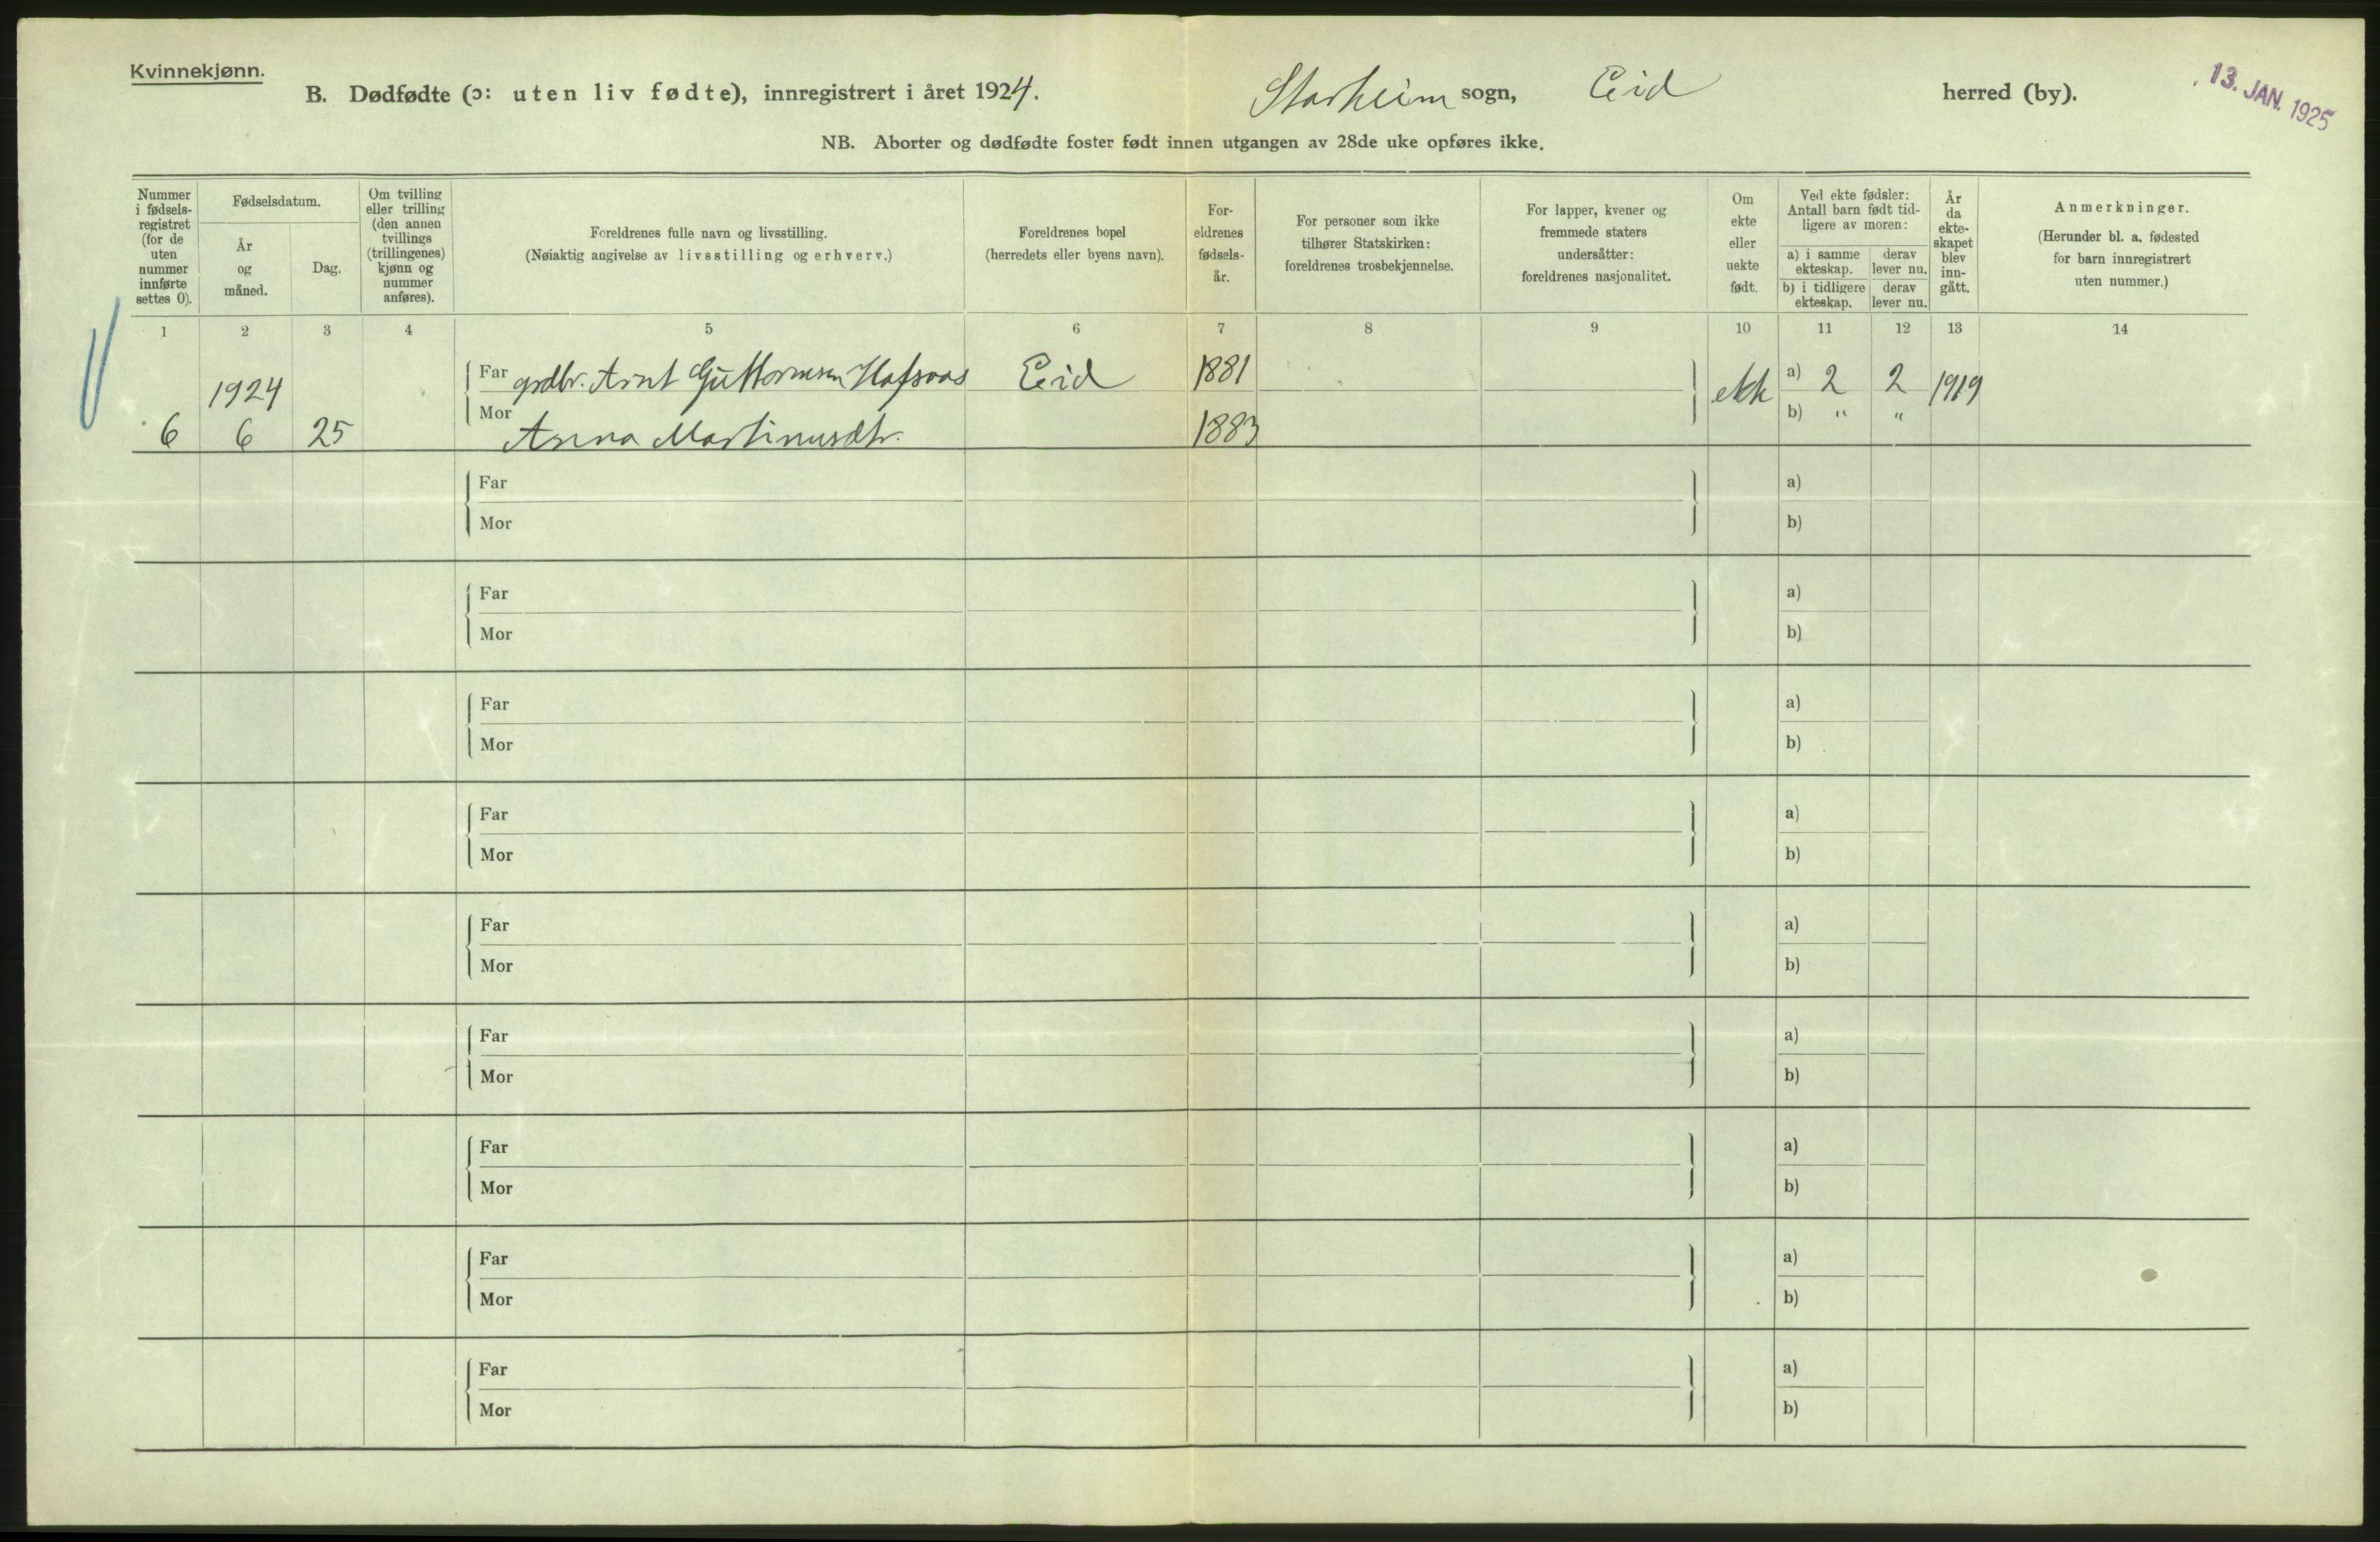 Kvinnekjønn.
B. Dødfødte (ɔ: uten liv fødte), innregistrert i året 1924. Starheim sogn, Eid herred (by).
13. JAN. 1925
NB. Aborter og dødfødte foster født innen utgangen av 28de uke opføres ikke.
Nummer
i fødsels-
registret
(for de
uten
nummer
innførte
settes 0).
Fødselsdatum.
År
og
måned.
Dag.
Om tvilling
eller trilling
(den annen
tvillings
(trillingenes)
kjønn og
nummer
anføres).
Foreldrenes fulle navn og livsstilling.
(Nøiaktig angivelse av livsstilling og erhverv.)
Foreldrenes bopel
(herredets eller byens navn).
For-
eldrenes
fødsels-
år.
For personer som ikke
tilhører Statskirken:
foreldrenes trosbekjennelse.
For lapper, kvener og
fremmede staters
undersåtter:
foreldrenes nasjonalitet.
Om
ekte
eller
uekte
født.
Ved ekte fødsler:
Antall barn født tid-
ligere av moren:
a) i samme
ekteskap.
derav
lever nu.
b) i tidligere
ekteskap.
derav
lever nu.
År
da
ekte-
skapet
blev
inn-
gått.
Anmerkninger.
(Herunder bl. a. fødested
for barn innregistrert
uten nummer.)
1 2 3 4 5 6 7 8 9 10 11 12 13 14
1924 Far grdbr. Arnt Guttormsen Hafsaas Eid 1881 ekte a) 2 2 1919
6 6 25 Mor Anna Martinusdtr. 1883 b) " "
Far a)
Mor b)
Far a)
Mor b)
Far a)
Mor b)
Far a)
Mor b)
Far a)
Mor b)
Far a)
Mor b)
Far a)
Mor b)
Far a)
Mor b)
Far a)
Mor b)